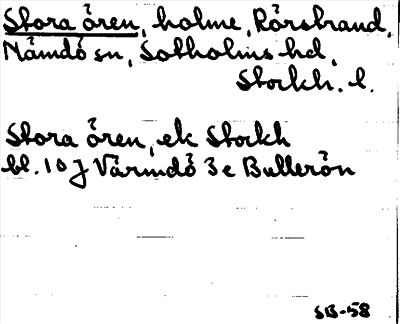 Stora ören, holme, Rörstrand,
Nämdö sn, Sotholms hd,
Stockh. l.
Stora ören, ek Stockh
bl. 10 J Värmdö 3 e Bullerön
SB-58